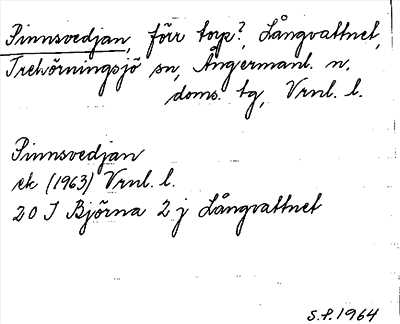 Pinnsvedjan, förr torp?, Långvattnet,
Trehörningsjö sn, Ångermanl. n.
doms. tg, Vrnl. l.
Pinnsvedjan
ek (1963) Vrnl. l.
20 I Björna 2 j Långvattnet
S.F. 1964